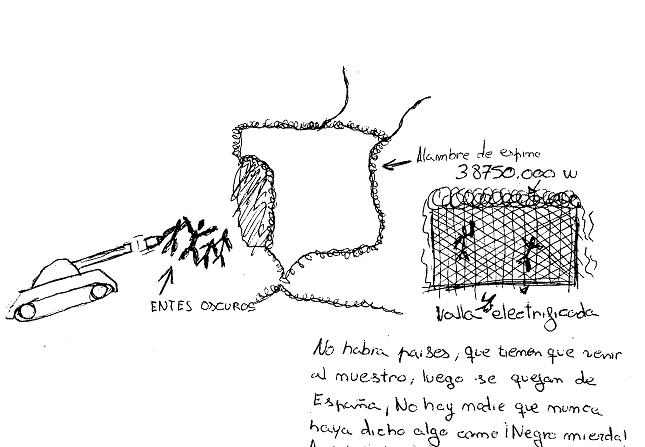 Alambre de espino
38750,000 W
ENTES OSCUROS
Valla electrificada
No habrá paises, que tienen que venir
al nuestro, luego se quejan de
España, No hay nadie que nunca
haya dicho algo como ¡Negro mierda!